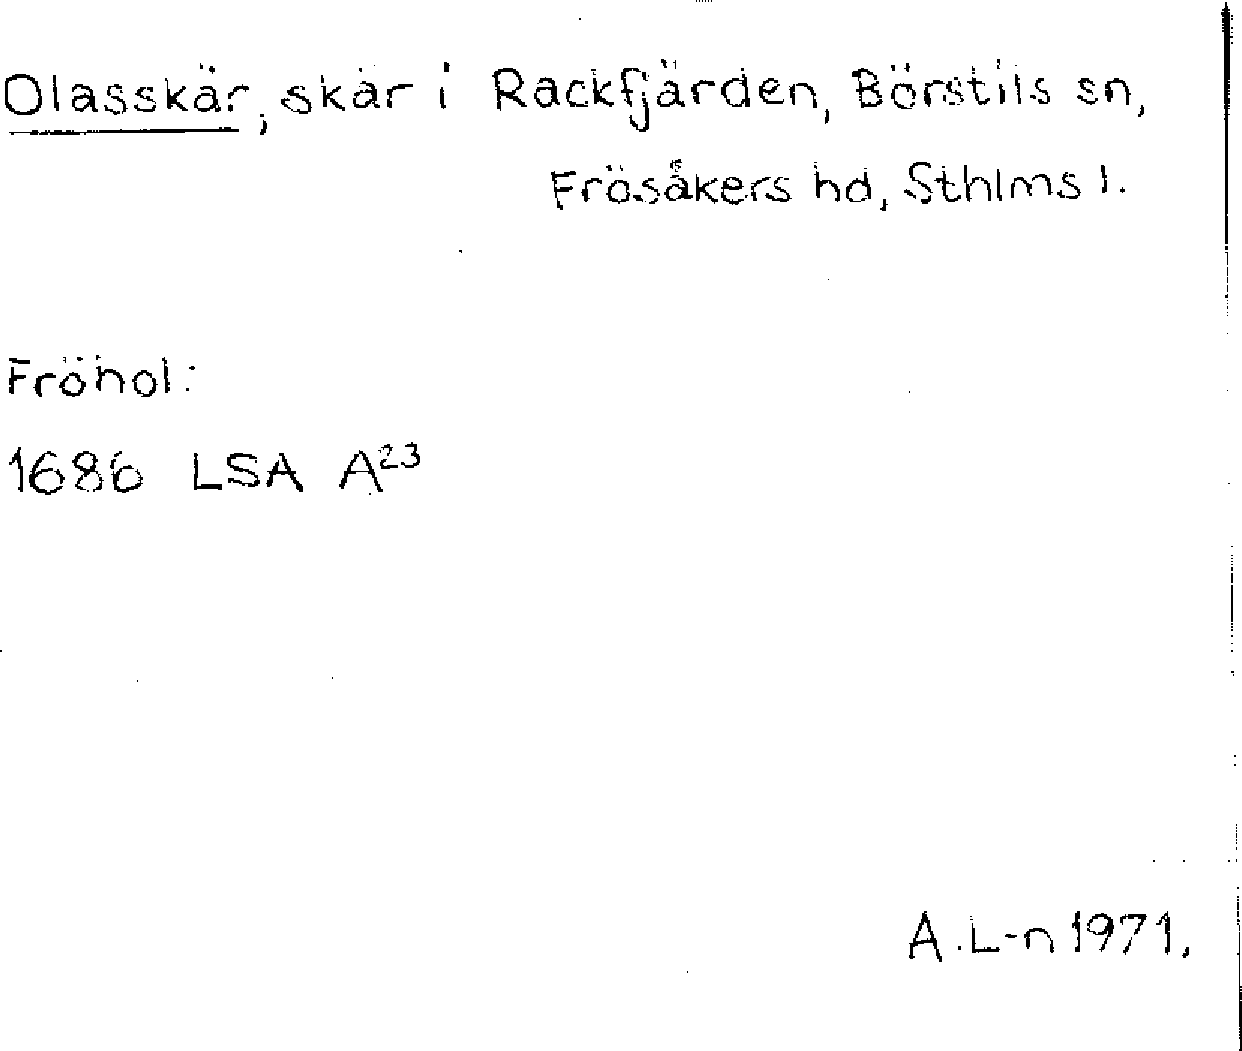 Olasskär, skär i Rackfjärden, Börstils sn,
Frösåkers hd, Sthlms l.
Fröhol:
1686 LSA A²³
A.L-n 1971.